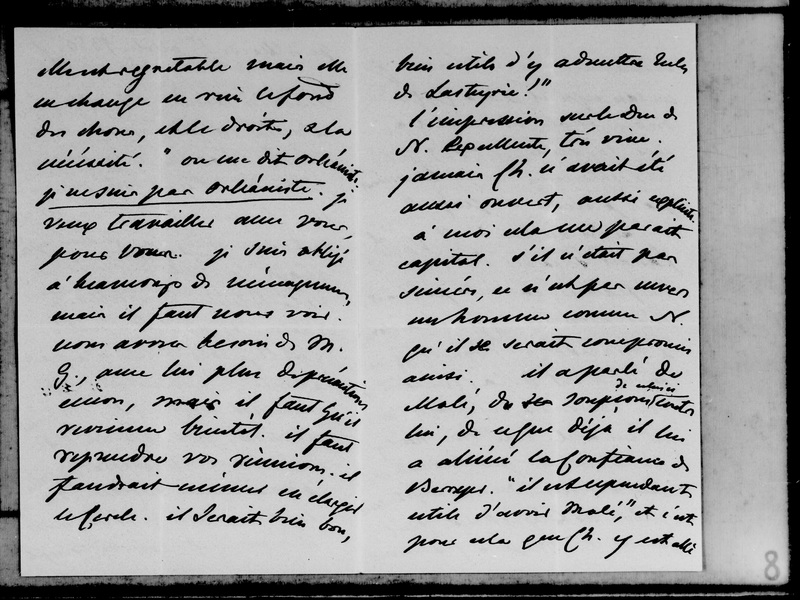 regrettable mais
ne change en rien le fond
des choses, et le droit, et la
nécessité. " on me dit orléaniste.
je ne suis pas orléaniste. je
veux travailler avec vous,
pour vous. je suis obligé
à beaucoup de ménagemens,
mais il faut nous voir.
nous avons besoin de M.
G, avec lui plus de
mais il faut qu'il
revienne bientôt. il faut
reprendre vos réunions. il
faudrait même en élargir
le cercle. il serait bien bon,
bien utile d'y admettre Jules
de Lasteyrie!"
l'impression sur le Duc de
N. excellente, très vive.
jamais Ch. n'avait été
aussi ouvert, aussi explicite.
à moi cela me parait
capital. s'il n'était pas
sincère, ce n'est pas envers
un homme comme N.
qu'il se serait compromis
ainsi. il a parlé de
Molé, des soupçons contre
lui, de ce que déjà il lui
a aliéné la confiance de
Berryer. "il est cependant
utile d'avoir Molé," et c'est
pour cela que Ch. y est allé
8